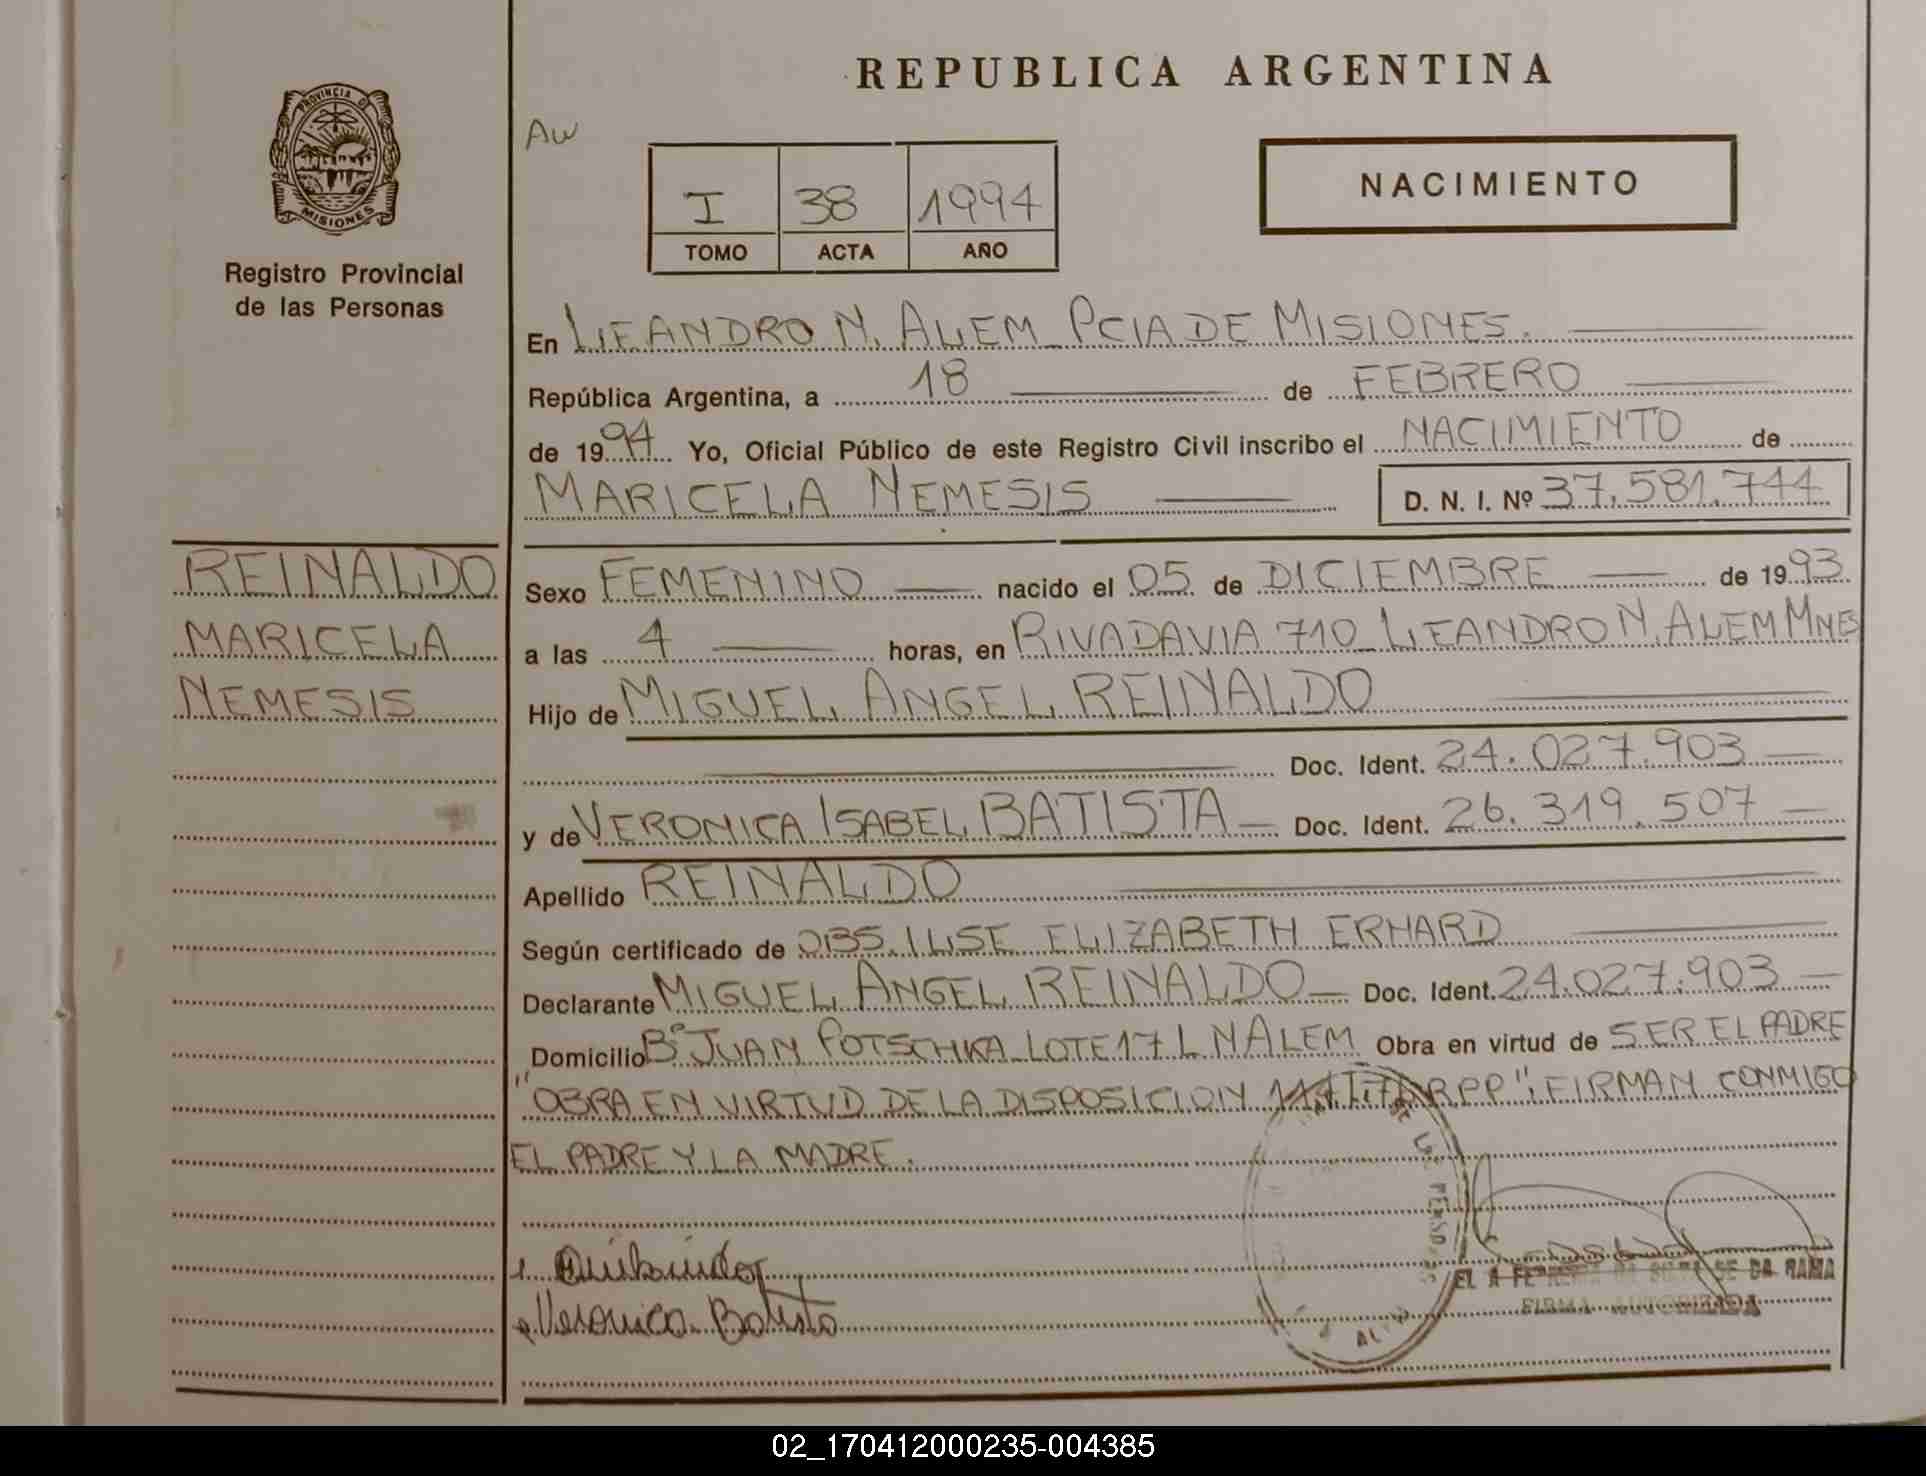 REPUBLICA ARGENTINA
PROVINCIA D
MISIONES
Registro Provincial
de las Personas
AW
I 38 1994
TOMO ACTA AÑO
NACIMIENTO
En LEANDRO N. ALEM PCIA DE MISIONES.
República Argentina, a 18 de FEBRERO
de 1994 Yo, Oficial Público de este Registro Civil inscribo el NACIMIENTO de
MARICELA NEMESIS D. N. I. Nº 37.581.744
REINALDO
MARICELA
NEMESIS
Sexo FEMENINO nacido el 05 de DICIEMBRE de 1993
a las 4 horas, en RIVADAVIA 710 LEANDRO N. ALEM MNES
Hijo de MIGUEL ANGEL REINALDO
Doc. Ident. 24.027.903
y de VERONICA ISABEL BATISTA Doc. Ident. 26.319.507
Apellido REINALDO
Según certificado de OBS. ILSE ELIZABETH ERHARD
Declarante MIGUEL ANGEL REINALDO Doc. Ident. 24.027.903
Domicilio Bº JUAN POTSCHKA LOTE 17 L N ALEM Obra en virtud de SER EL PADRE
"OBRA EN VIRTUD DE LA DISPOSICION RPP"; FIRMAN CONMIGO
EL PADRE Y LA MADRE.
Veronica Batista
DA RAMA
FIRMA AUTORIZADA
02_170412000235-004385